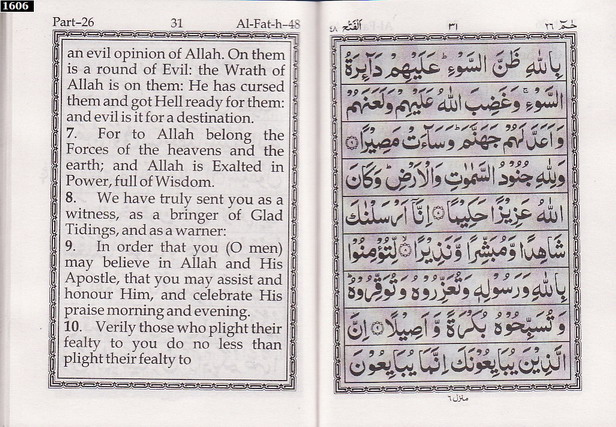 1606
Part-26 31 Al-Fat-h-48
an evil opinion of Allah. On them
is a round of Evil: the Wrath of
Allah is on them: He has cursed
them and got Hell ready for them:
and evil is it for a destination.
7. For to Allah belong the
Forces of the heavens and the
earth; and Allah is Exalted in
Power, full of Wisdom.
8. We have truly sent you as a
witness, as a bringer of Glad
Tidings, and as a warner:
9. In order that you (O men)
may believe in Allah and His
Apostle, that you may assist and
honour Him, and celebrate His
praise morning and evening.
10. Verily those who plight their
fealty to you do no less than
plight their fealty to
حٰمٓ ٢٦ ٣١ اَلْفَتْحِ ٤٨
بِاللّٰهِ ظَنَّ السَّوْءِ ؕ عَلَيْهِمْ دَآئِرَةُ
السَّوْءِ ۚ وَغَضِبَ اللّٰهُ عَلَيْهِمْ وَلَعَنَهُمْ
وَاَعَدَّ لَهُمْ جَهَنَّمَ ؕ وَسَآءَتْ مَصِيْرًا ۝
وَلِلّٰهِ جُنُوْدُ السَّمٰوٰتِ وَالْاَرْضِ ؕ وَكَانَ
اللّٰهُ عَزِيْزًا حَكِيْمًا ۝ اِنَّاۤ اَرْسَلْنٰكَ
شَاهِدًا وَّمُبَشِّرًا وَّنَذِيْرًا ۝ لِّتُؤْمِنُوْا
بِاللّٰهِ وَرَسُوْلِهٖ وَتُعَزِّرُوْهُ وَتُوَقِّرُوْهُ ؕ
وَتُسَبِّحُوْهُ بُكْرَةً وَّاَصِيْلًا ۝ اِنَّ
الَّذِيْنَ يُبَايِعُوْنَكَ اِنَّمَا يُبَايِعُوْنَ
منزل ٦